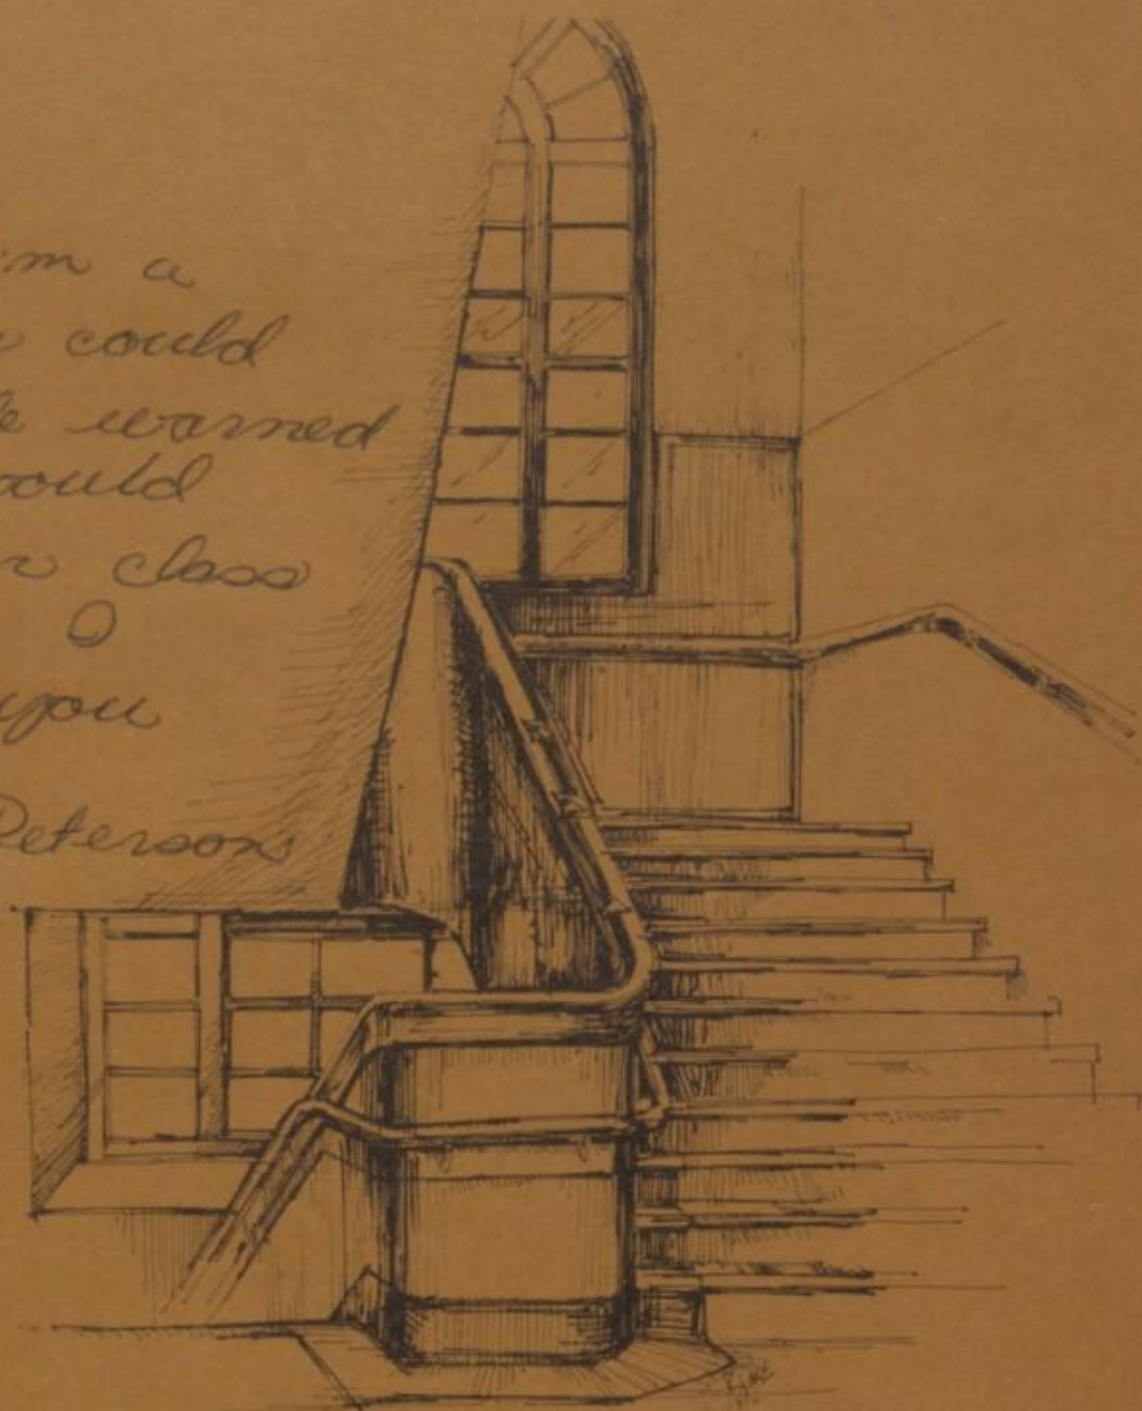 a
could
warned
would
class
you
Peterson